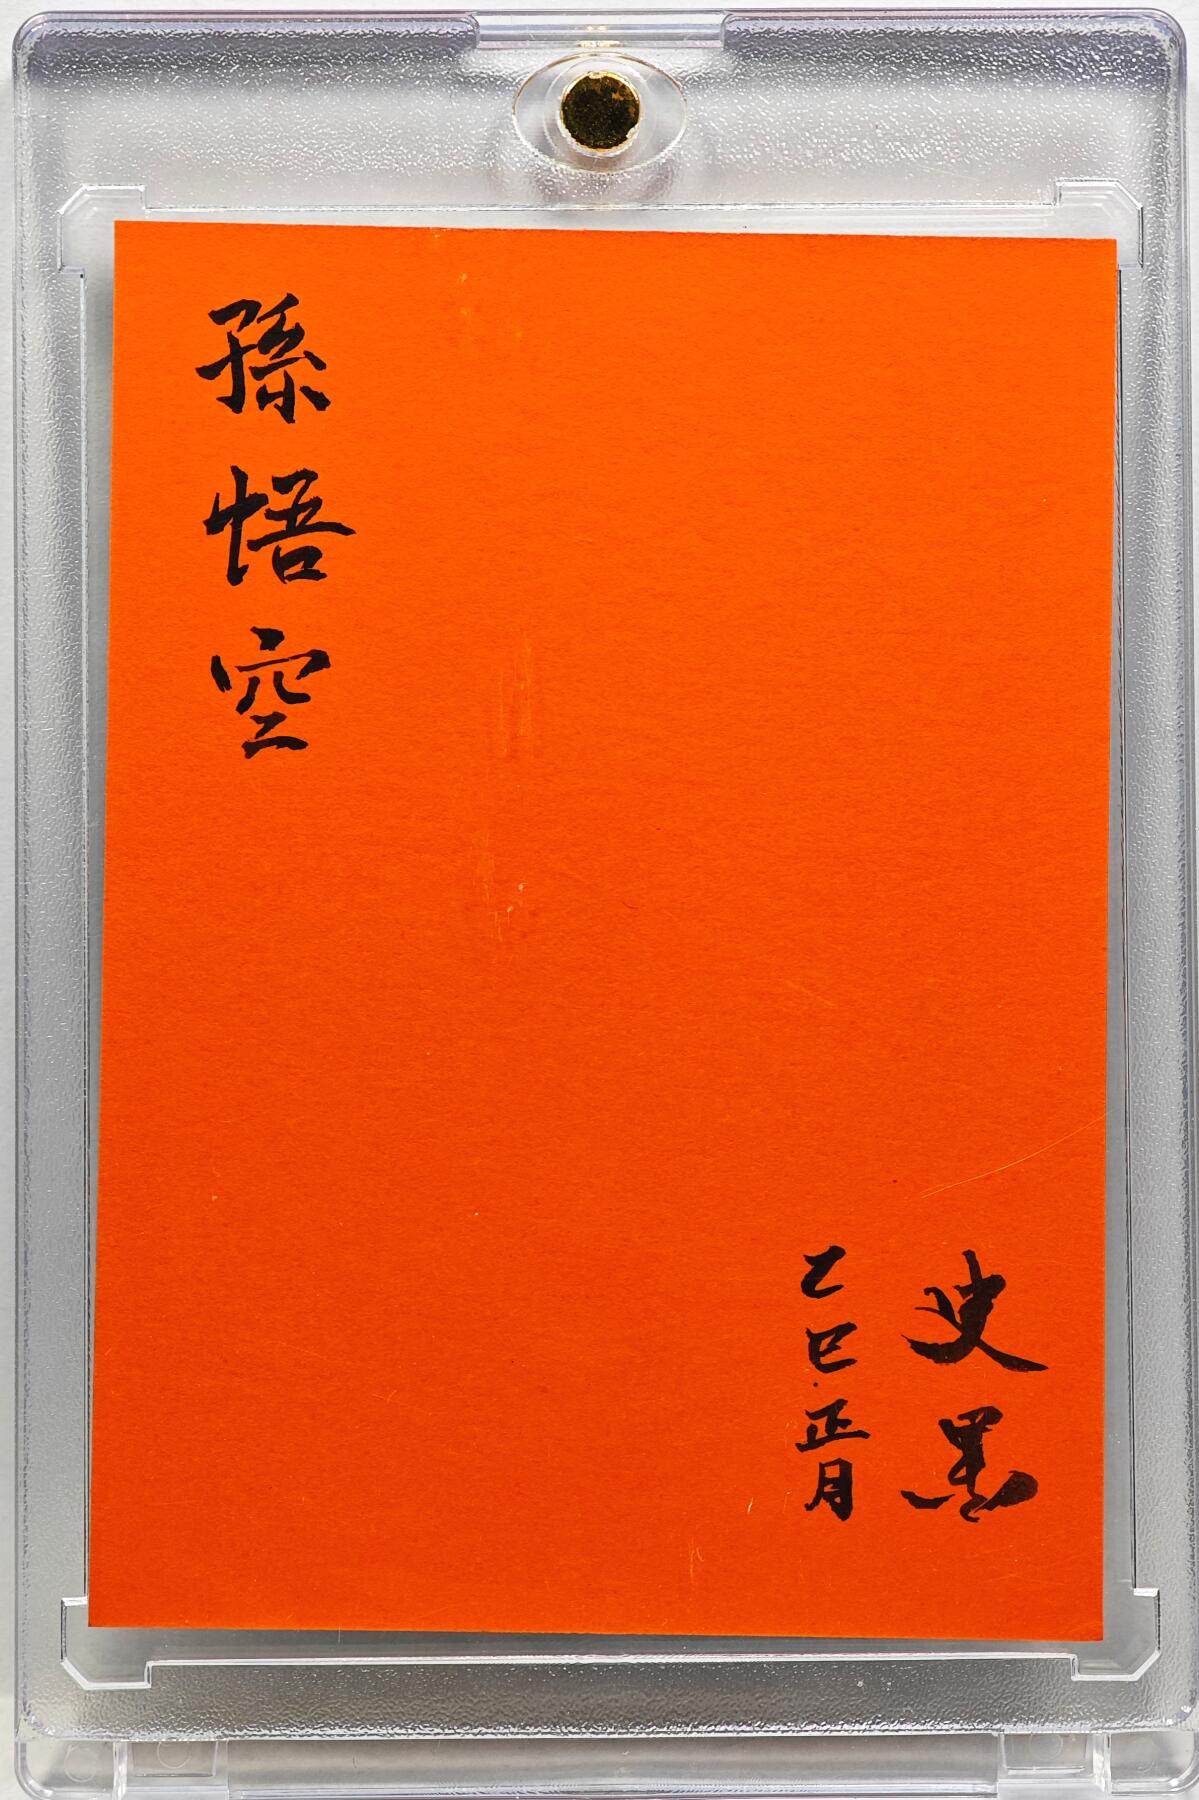 孫悟空
史墨
乙巳正月